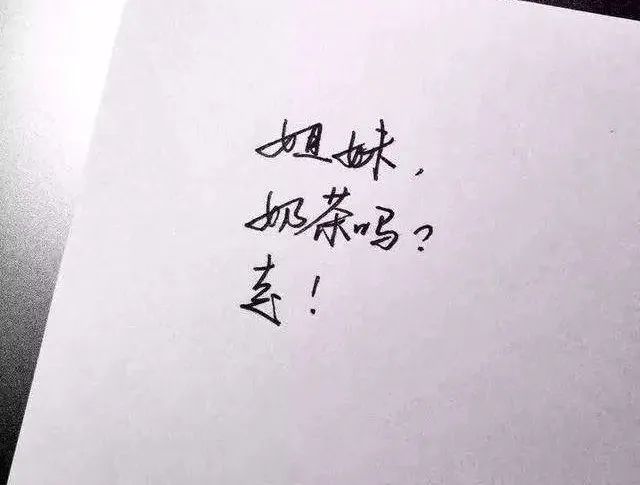 姐妹，
奶茶吗？
走！